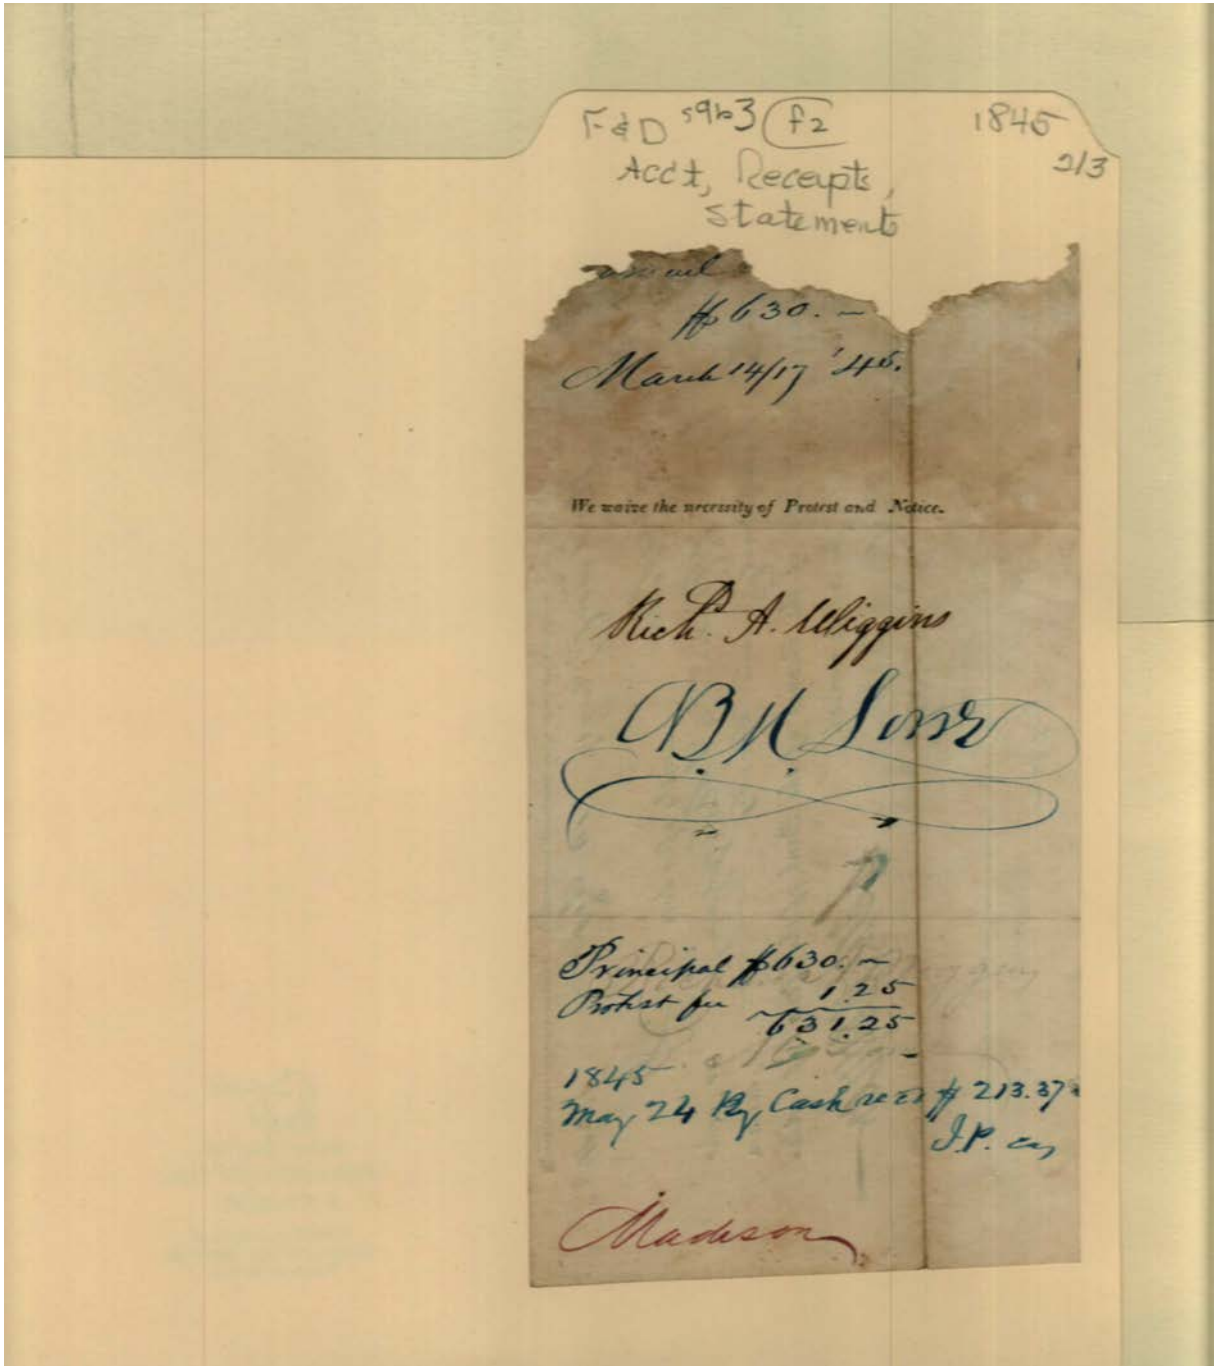 F & D s9b3 f2 1845
Acct, Receipts, 2/3
Statements
$630. –
March 14/17 '45.
We waive the necessity of Protest and Notice.
Richd. A. Wiggins
B. N.
Principal $630. –
Protest fee 1.25
631.25
1845
May 24 By Cash recd $213.37
J.P.
Madison